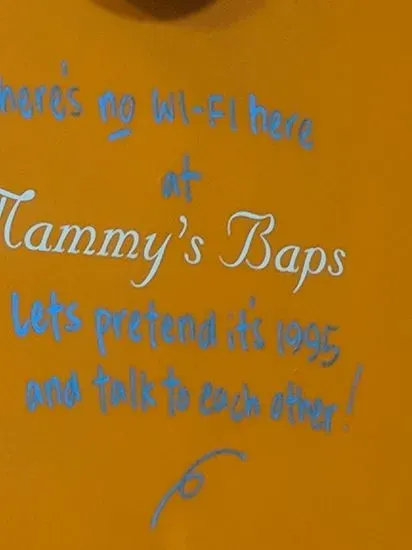 here's no WI-FI here
at
Mammy's Baps
Lets pretend it's 1995
and talk to each other!